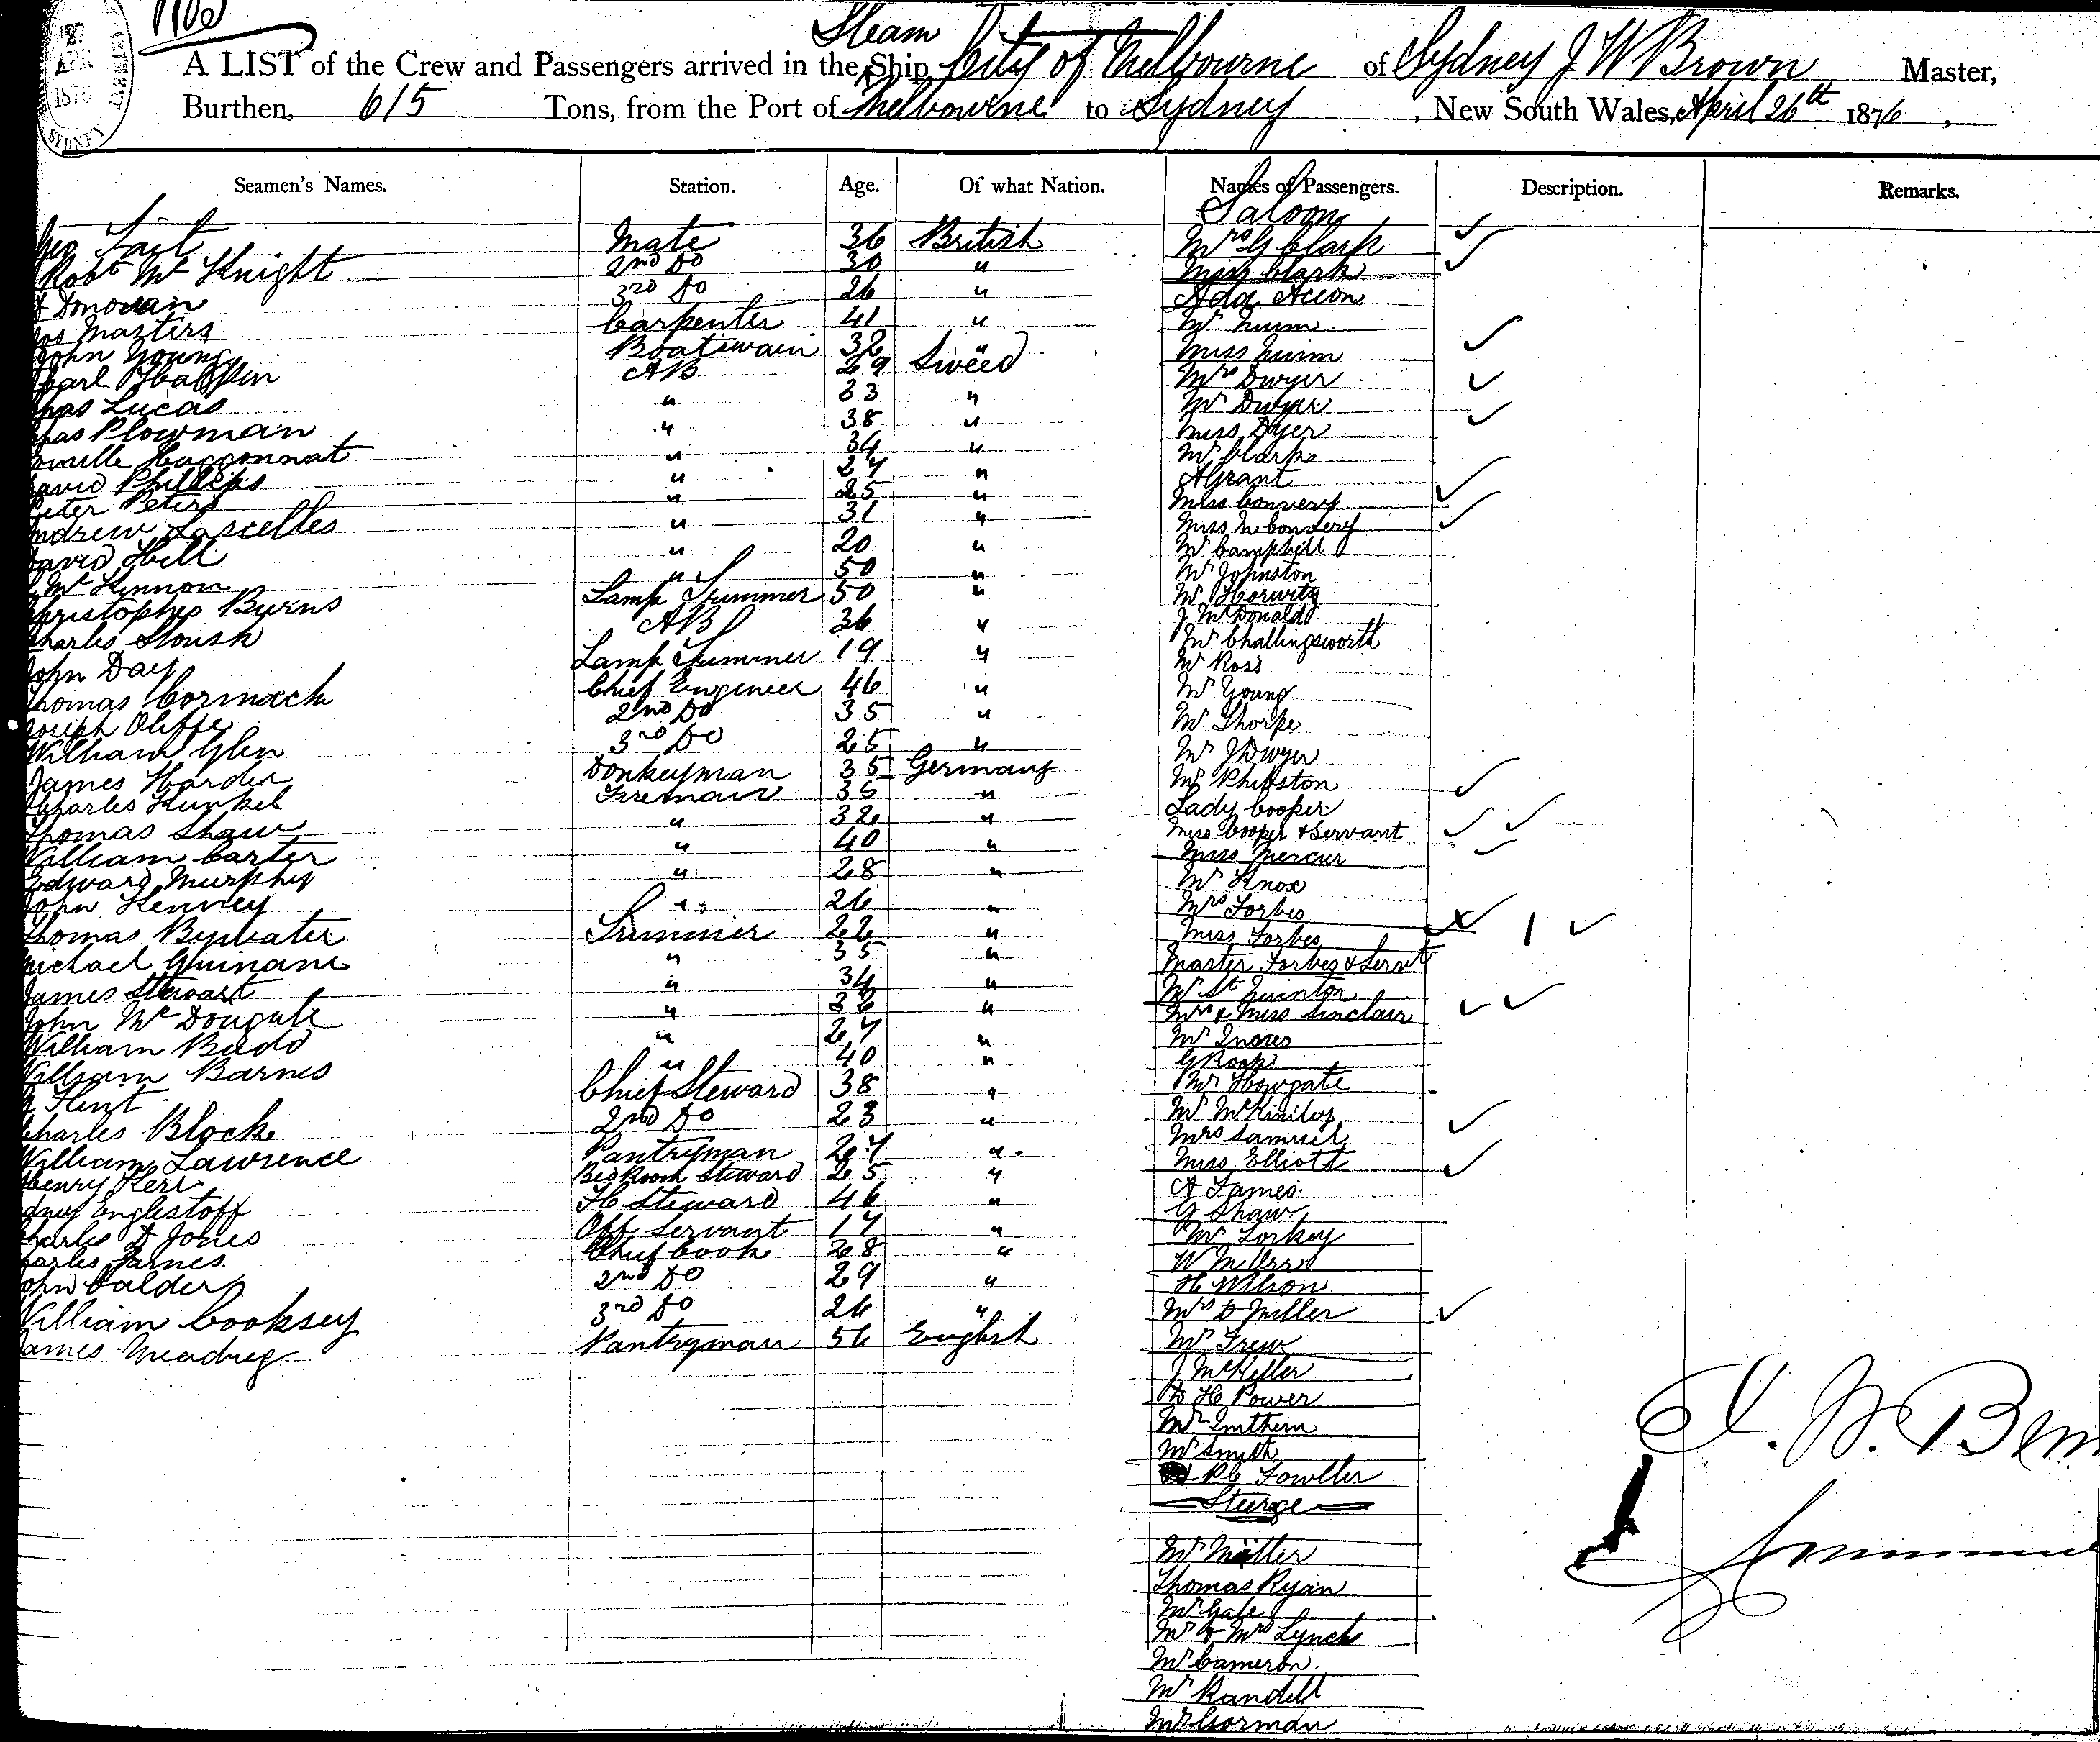 Steam
A LIST of the Crew and Passengers arrived in the Ship City of Melbourne of Sydney J W Brown Master,
Burthen, 615 Tons, from the Port of Melbourne to Sydney, New South Wales, April 26th 1876,
Seamen's Names. Station. Age. Of what Nation. Names of Passengers. Description. Remarks.
Saloon
Geo Tait Mate 36 British Mrs G Clark
Robt McKnight 2nd Do 30 " Miss Clark
Donovan 3rd Do 26 " Ada
Jos Masters Carpenter 41 " Mr Quinn
John Young Boatswain 32 " Miss Quinn
Carl AB 29 Sweed Mrs Dwyer
Chas Lucas " 33 " Mr Dwyer
Chas Plowman " 38 " Miss Dyer
" 34 " Mr Clark
David Phillips " 27 " A Grant
Peter Peters " 25 " Miss Convery
Andrew Lascelles " 31 " Miss M Convery
David Hill " 20 " Mr Campbell
McKinnon " 50 " Mr Johnston
Christopher Byrns Lamp Trimmer 50 " Mr Horwitz
Charles AB 36 " J McDonald
Mr Challingsworth
John Day Lamp Trimmer 19 " Mr Ross
Thomas Cormack Chief Engineer 46 " Mr Young
Joseph Oliffe 2nd Do 35 " Mr Thorpe
William Glen 3rd Do 25 " Mr J Dwyer
James Harder Donkeyman 35 Germany Mr
Charles Kunkel Fireman 35 " Lady Cooper
Thomas Shaw " 32 " Miss Cooper & Servant
William Carter " 40 " Miss Mercer
Edward Murphy " 28 " Mr Knox
John Kenney " 26 " Mrs Forbes
Thomas Bywater Trimmer 22 " Miss Forbes
Michael Guinane " 35 " Master Forbes & Servt
James Stewart " 34 " Mr St Quinton
John McDougale " 32 " Mrs & Miss Sinclair
William Budd " 27 " Mr
William Barnes " 40 " G Rook
Flint Chief Steward 38 " Mr Howgate
Charles Block 2nd Do 23 " Mr McKinley
Mrs Samuel
William Lawrence Pantryman 27 " Miss Elliott
Henry Kerr Bed Room Steward 25 " A James
Sydney Englestoff F C Steward 46 " G Shaw
Charles D Jones Off Servant 17 " Mr Lorkey
Charles James Chief Cook 28 " W M
John Calder 2nd Do 29 " H Wilson
William Cooksey 3rd Do 26 " Mrs D Miller
James Pantryman 56 English Mr Frew
J McKeller
D H Power
Mr
Mr Smith
P C Fowller
Steerage
Mr Mitter
Thomas Ryan
Mr Gale
Mr & Mrs Lynch
Mr Cameron
Mr Randell
Mr Gorman